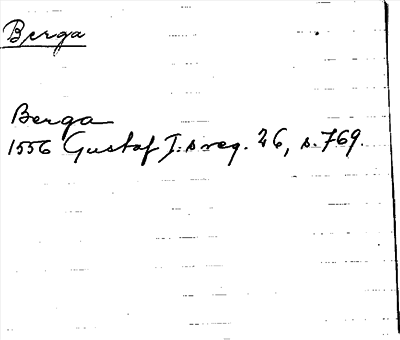 Berga
Berga
1556 Gustaf I:s reg. 26, s. 769.